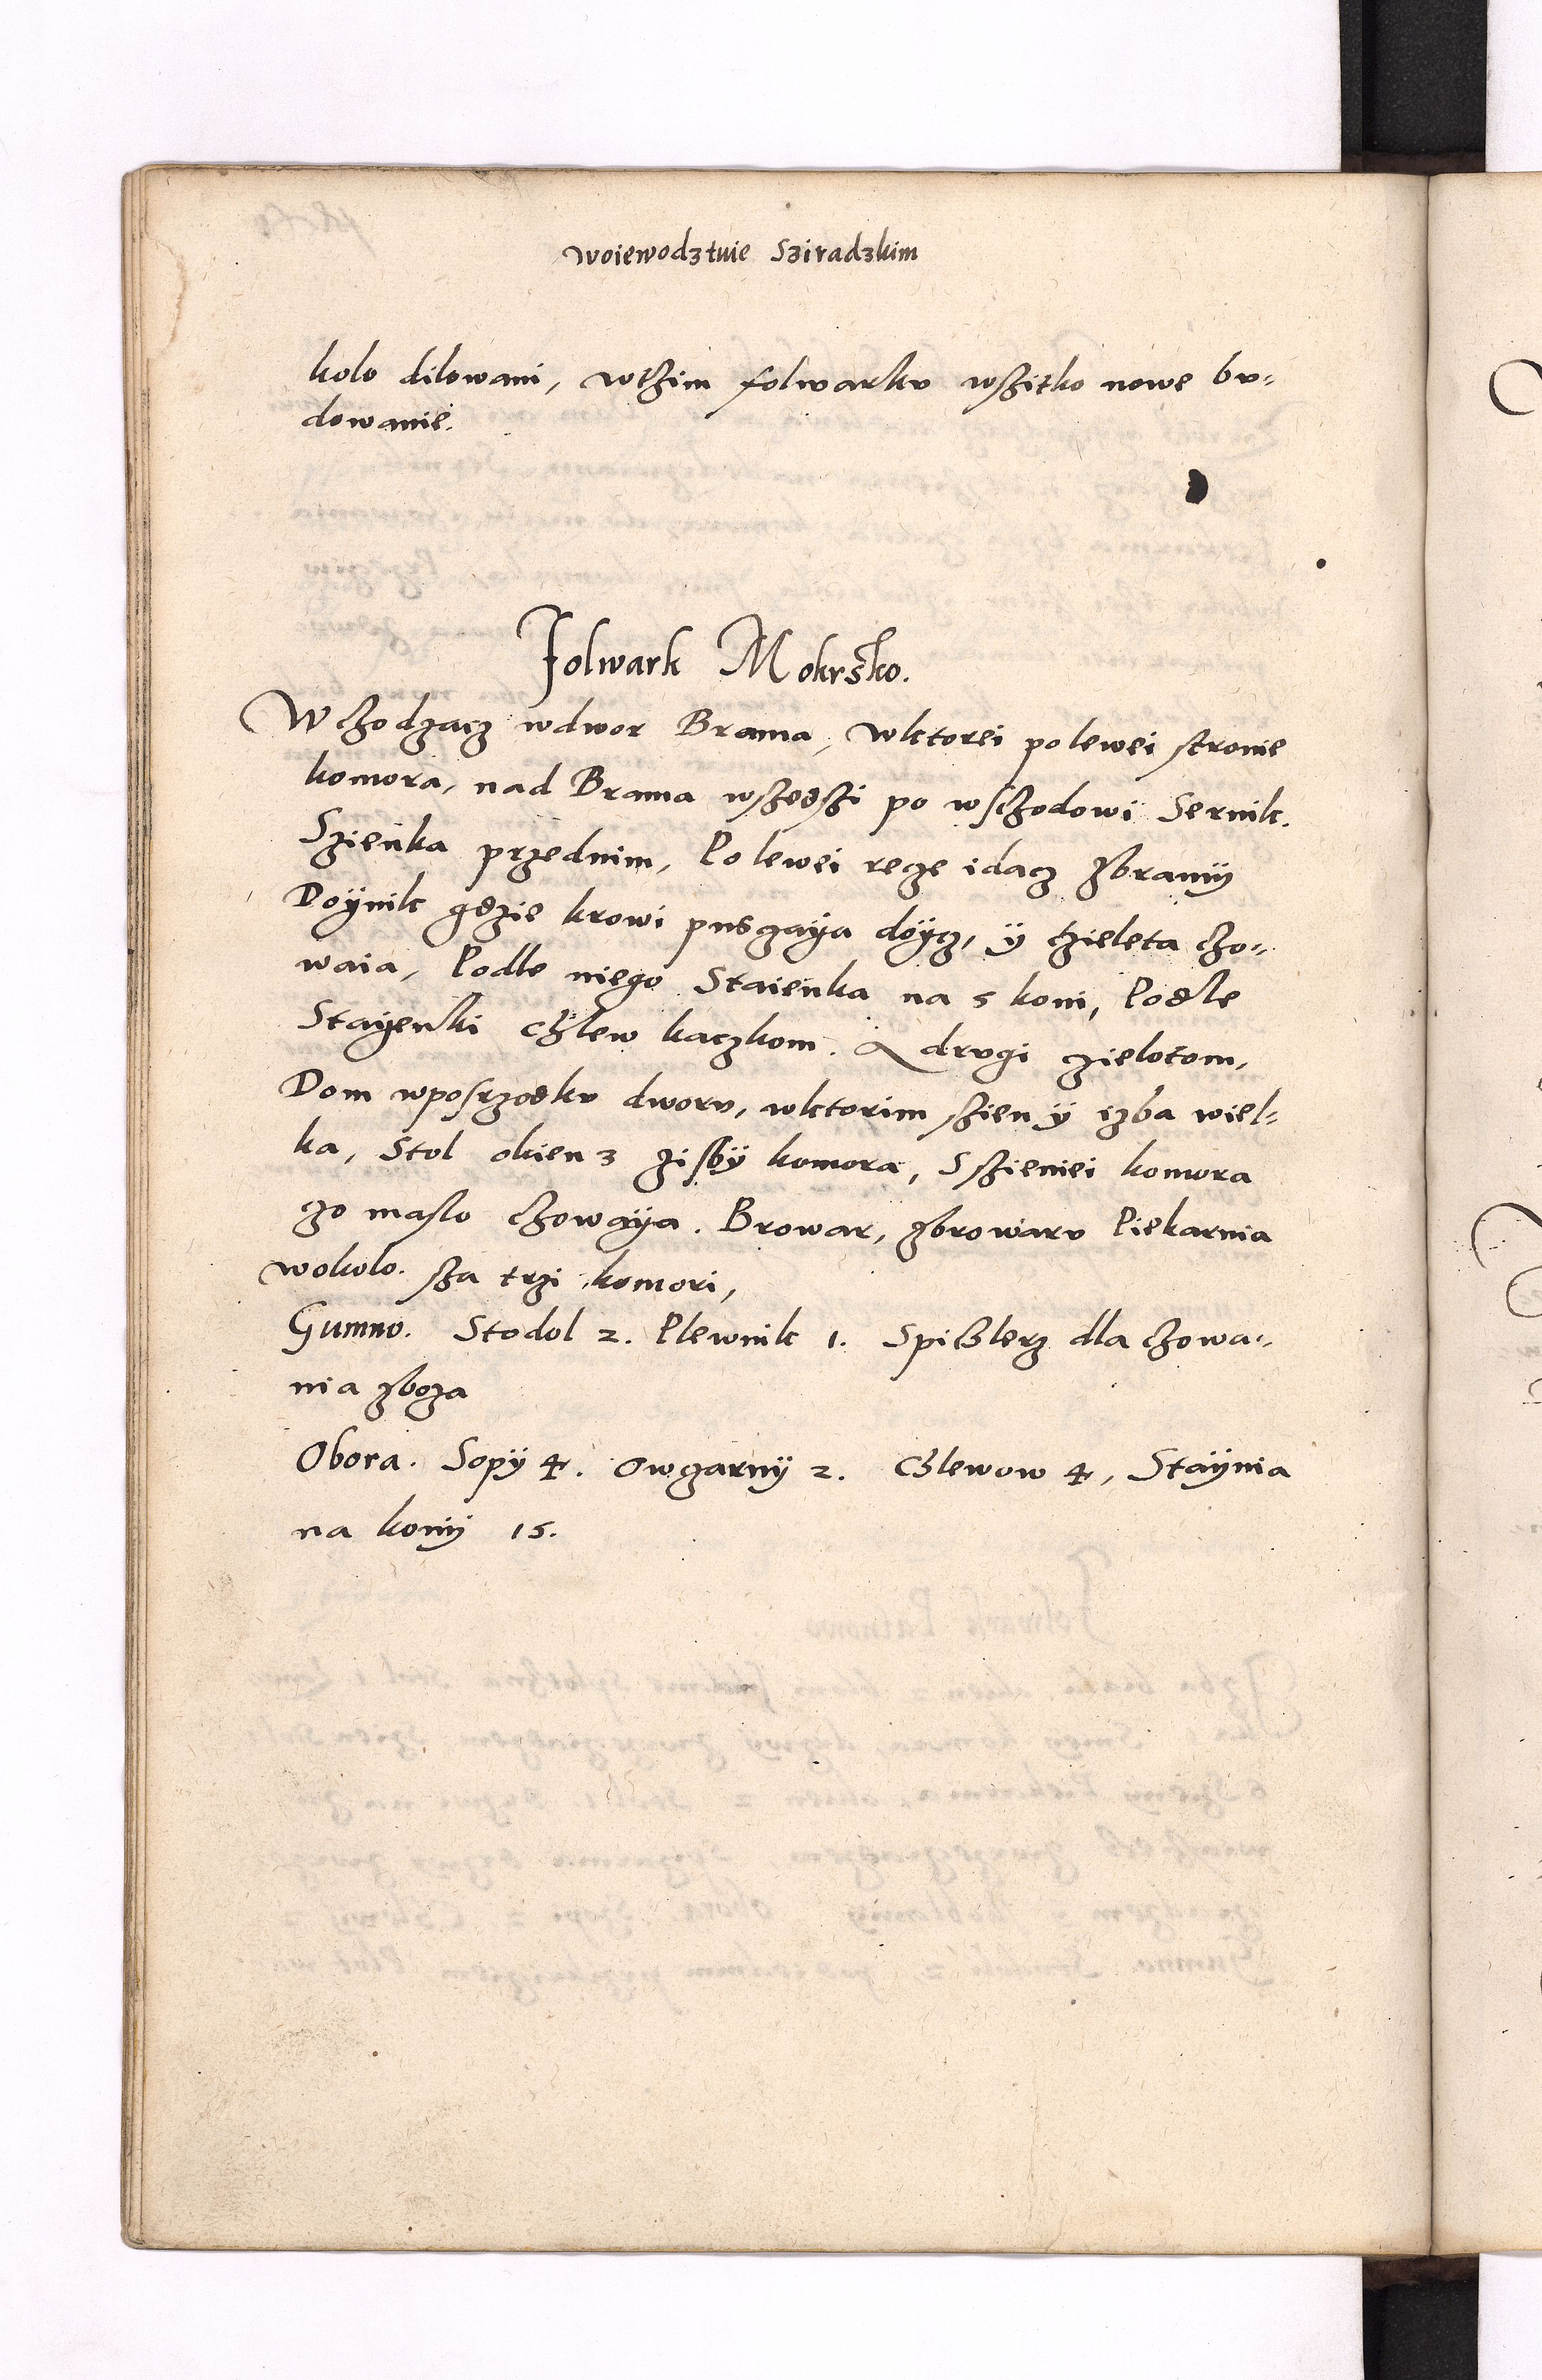 woiewodztwie Sziradzkim
kolo dilowani, wtzim folwarku wszitko nowe bu-
dowanie.
Folwark Mokrsko.
Wchodzacz wdwor Brama, wktorei polewei stronie
komora, nad Brama wszedzi po wschodowi Sernik.
Szienka przednim, Polewei recze idacz zbramÿ
Doÿnik gdzie krowi puszaÿa doÿcz, ÿ czieleta cho-
waia, Podle niego Staienka na 5 koni, Podle
Stayenki Chlew kaczkom. A drugi czielotom,
Dom wposrzodku dworu, wktorim szien ÿ izba wiel-
ka, Stol okien 3 zisbÿ komora, S szieniei komora
czo maslo chowaÿa. Browar, zbrowaru Piekarnia
wokolo. sza trzi komori,
Gumno. Stodol 2. Plewnik 1. Spichlerz dla chowa-
nia zboza
Obora. Sopÿ 4. Owczarnÿ 2. Chlewow 4, Staÿnia
na konÿ 15.